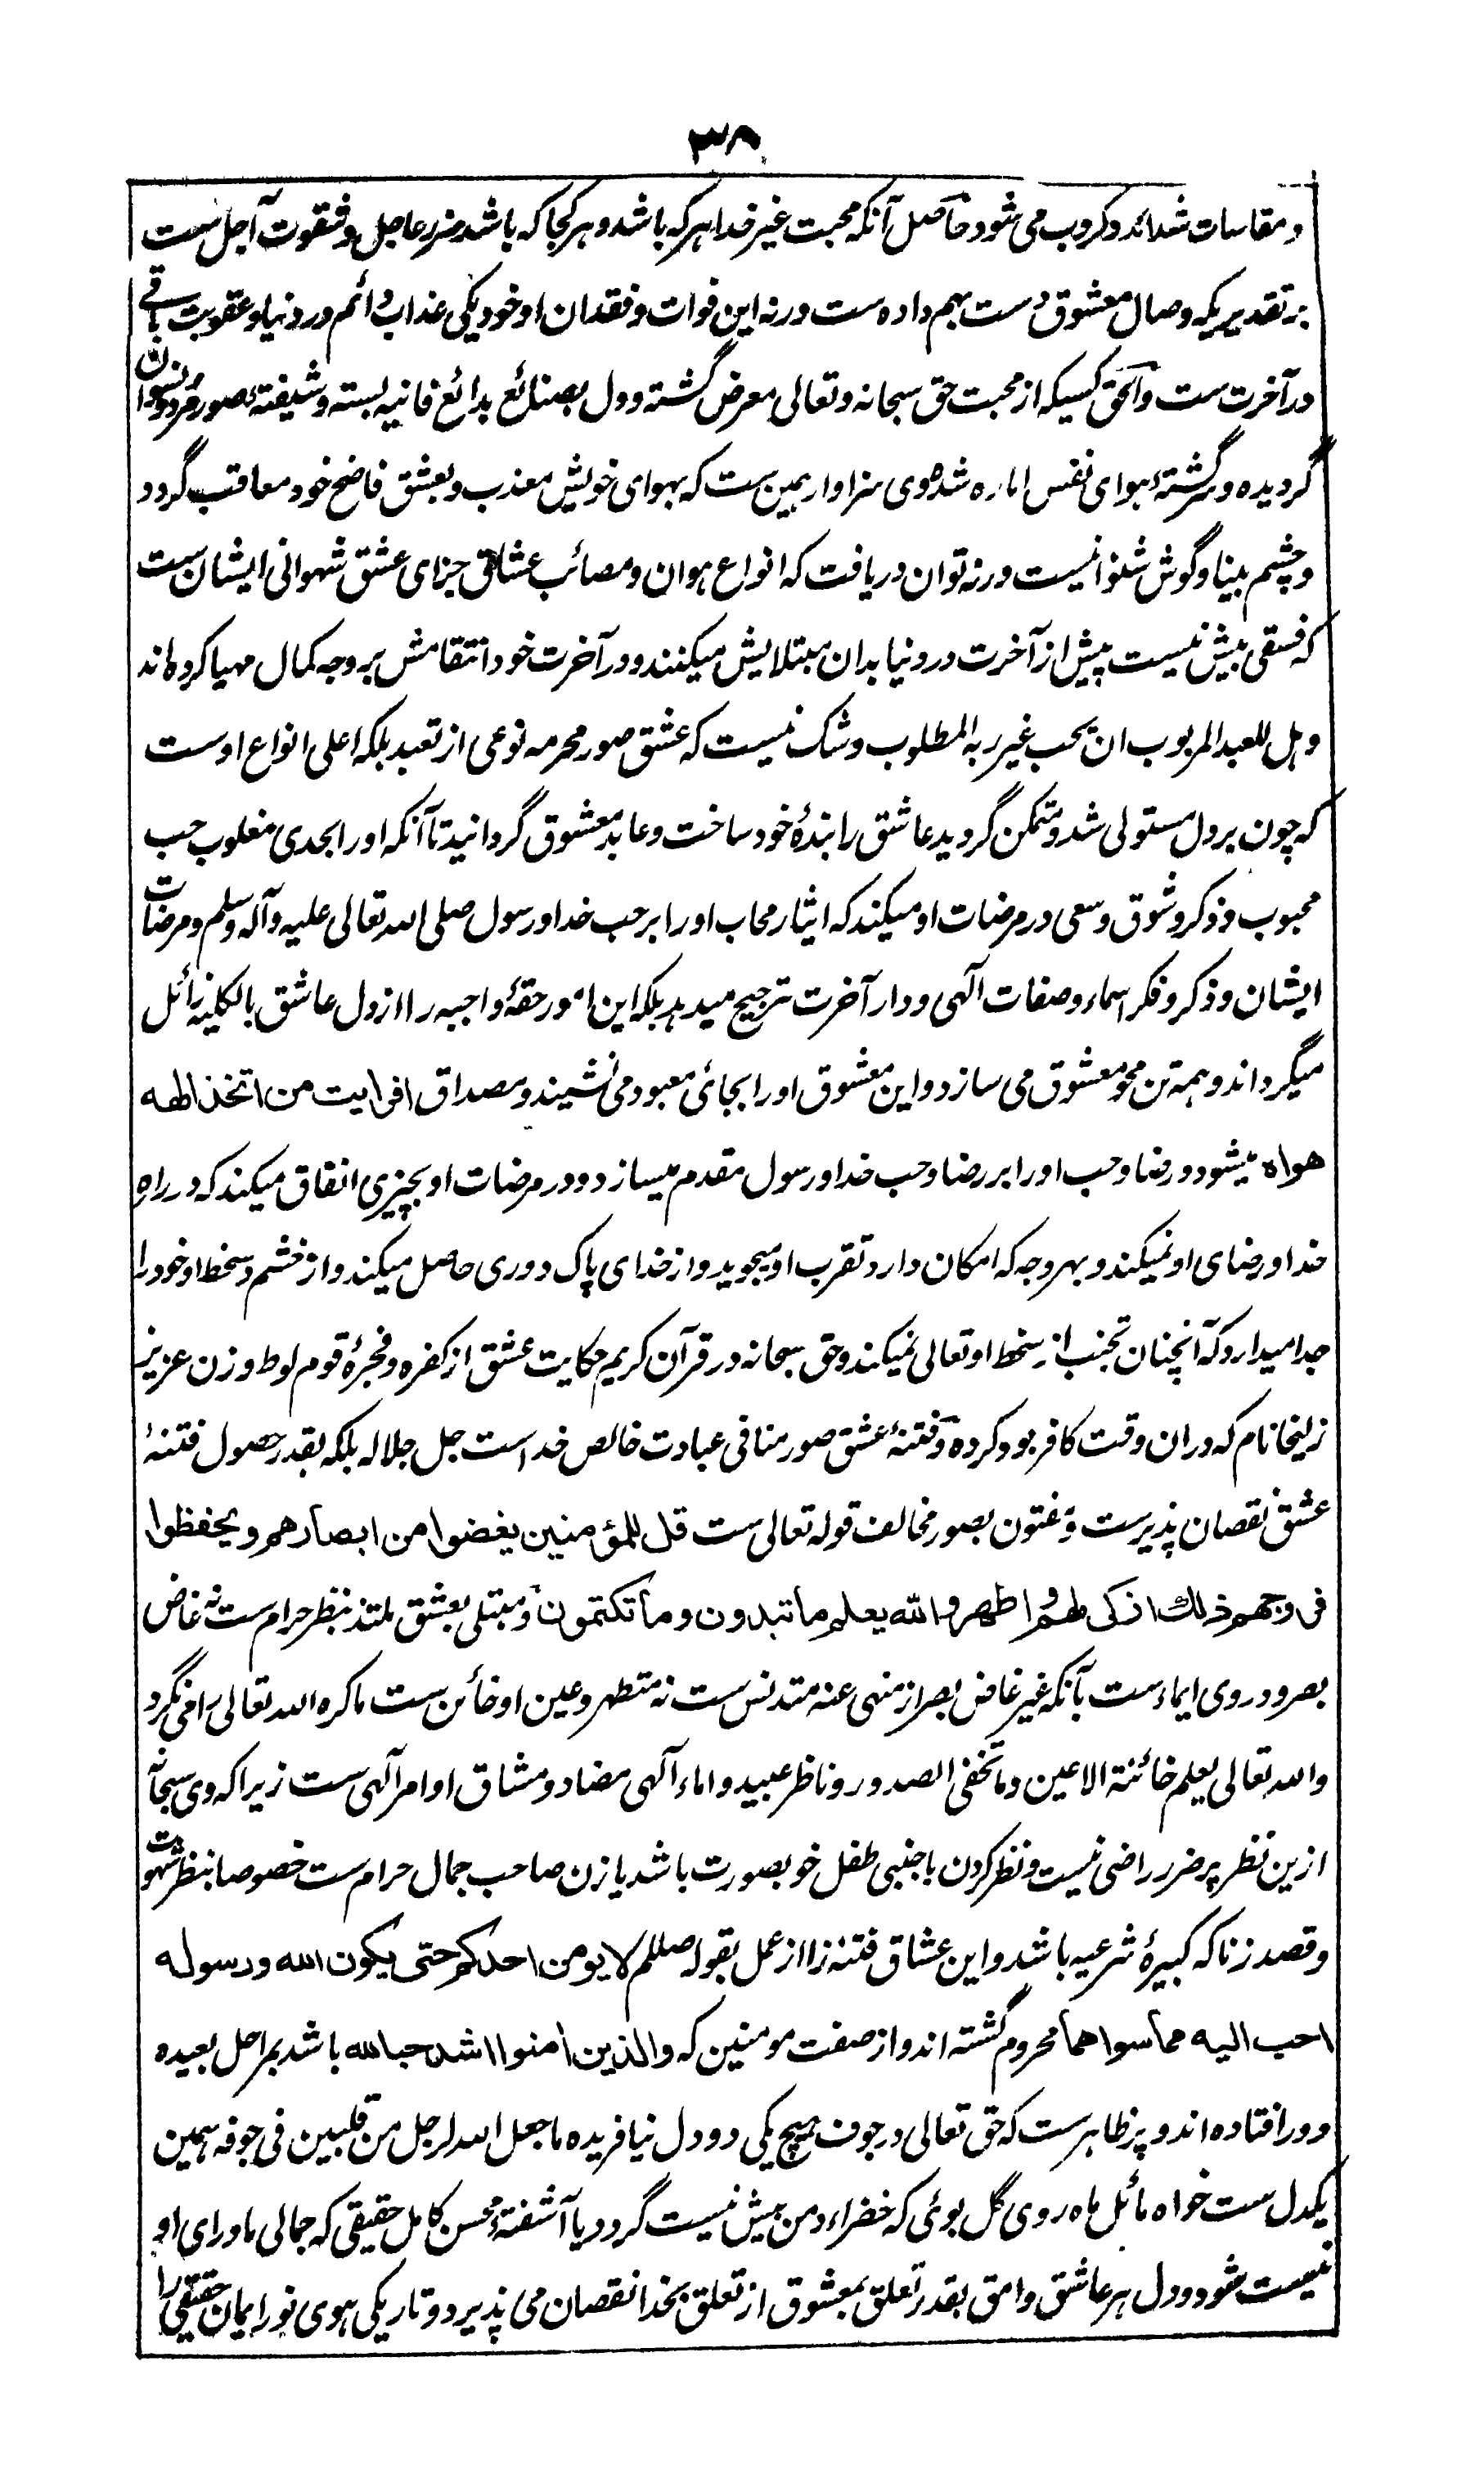 ۳۸
و مقاسات شدائد و کروب می شود حاصل آنکه محبت غیر خدا هر که باشد و هر کجا که باشد ضرر عاجل و شقوت آجل ست
بر تقدیریکه وصال معشوق دست بهم داده ست ورنه این فوات و فقدان او خود یکی عذاب دائم در دنیا و عقوبت باقے
در آخرت ست و الحق کسیکه از محبت حق سبحانه و تعالی معرض گشته و دل بصنائع بدائع فانیه بسته و شیفتهٔ صور مُرد و نسوان
گردیده و سرگشتهٔ هوای نفس اماره شده وی سزاوار همین ست که بهوای خویش معذب و بعشق فاضح خود معاقب گردد
و چشم بینا و گوش شنوا نیست ورنه توان دریافت که انواع هوان و مصائب عشاق جزای عشق شهوانی ایشان ست
که فسقی بیش نیست پیش از آخرت در دنیا بدان مبتلایش میکنند و در آخرت خود انتقامش بر وجه کمال مهیا کرده اند
و هل للعبد المربوب ان یحب غیر ربه المطلوب و شک نیست که عشق صور محرمه نوعی از تعبد بلکه اعلی انواع اوست
که چون بر دل مستولی شد و متمکن گردید عاشق را بندهٔ خود ساخت و عابد معشوق گردانید تا آنکه او را بحدی مغلوب حب
محبوب و ذکر و شوق و سعی در مرضات او میکند که ایثار محاب او را بر حب خدا و رسول صلی الله تعالی علیه و آله وسلم و مرضات
ایشان و ذکر و فکر اسماء و صفات الهی و دار آخرت ترجیح میدهد بلکه این امور حقهٔ واجبه را از دل عاشق بالکلیه زائل
میگرداند و همه تن محو معشوق می سازد و این معشوق او را بجائ معبود می نشیند و مصداق افرایت من اتخذ الهه
هواه میشود و رضا و حب او را بر رضا و حب خدا و رسول مقدم میسازد و در مرضات او بچیزی انفاق میکند که در راه
خدا و رضای او نمیکند و بهر وجه که امکان دارد تقرب او میجوید و از خدای پاک دوری حاصل میکند و از خشم و سخط او خود را
جدا میدارد که آنچنان تجنب از سخط او تعالی نمیکند و حق سبحانه در قرآن کریم حکایت عشق از کفره و فجرهٔ قوم لوط و زن عزیز
زلیخا نام که دران وقت کافر بود کرده و فتنهٔ عشق صور منافی عبادت خالص خداست جل جلاله بلکه بقدر حصول فتنهٔ
عشق نقصان پذیرست و مفتون بصور مخالف قوله تعالی ست قل للمؤمنین یغضوا من ابصارهم و یحفظوا
فروجهم ذلك ازکی لهم و اطهر والله یعلم ما تبدون وما تکتمون و مبتلی بعشق ملتذ بنظر حرام ست نه غاض
بصر و در وی ایماءست بآنکه غیر غاض بصر از منهی عنه متدنس ست نه متطهر و عین او خائن ست ما کره الله تعالی را می نگرد
والله تعالی یعلم خائنة الاعین وما تخفی الصدور و ناظر عبید و اماء آلهی مضاد و مشاق اوامر آلهی ست زیرا که وی سبحانه
ازین نظر پر ضرر راضی نیست و نظر کردن باجنبی طفل خوبصورت باشد یا زن صاحب جمال حرام ست خصوصا بنظر شهوت
و قصد زنا که کبیرهٔ شرعیه باشد و این عشاق فتنه زا از عمل بقوله صللم لا یومن احدکم حتی یکون الله ورسوله
احب الیه مما سواهما محروم گشته اند و از صفت مومنین که والذین امنوا اشد حبا لله باشد بمراحل بعیده
دور افتاده اند و پر ظاهرست که حق تعالی در جوف هیچ یکی دو دل نیافریده ما جعل الله لرجل من قلبین فی جوفه همین
یکدل ست خواه مائل ماه روی گل بوئی که خضراء دمن بیش نیست گردد یا آشفتهٔ محسن کامل حقیقی که جمالی ماورای او
نیست شود و دل هر عاشق وامق بقدر تعلق بمعشوق از تعلق بخدا نقصان می پذیرد و تاریکی هوی نور ایمان حقیقی را